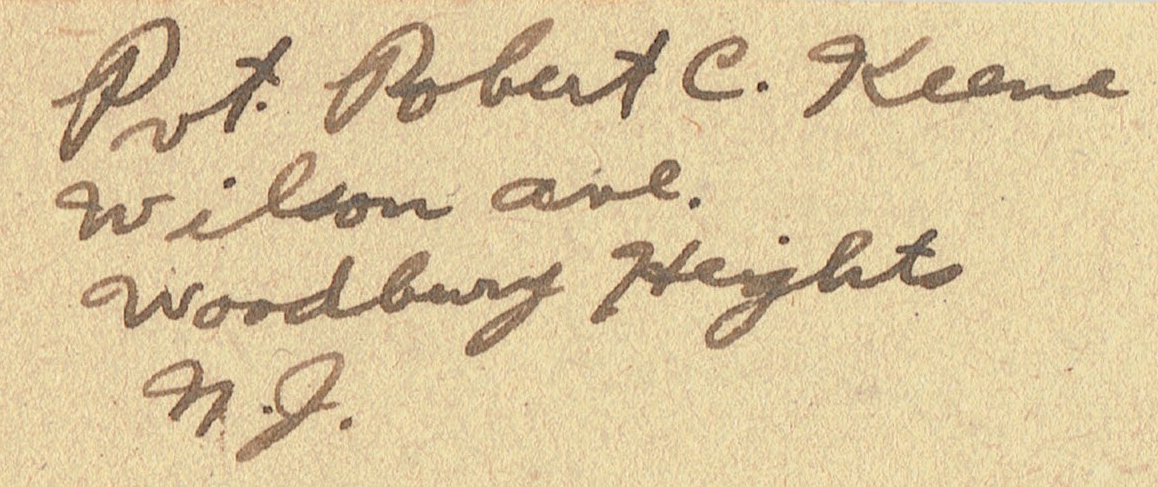 Pvt. Robert C. Keene
Wilson ave.
Woodbury Heights
N.J.